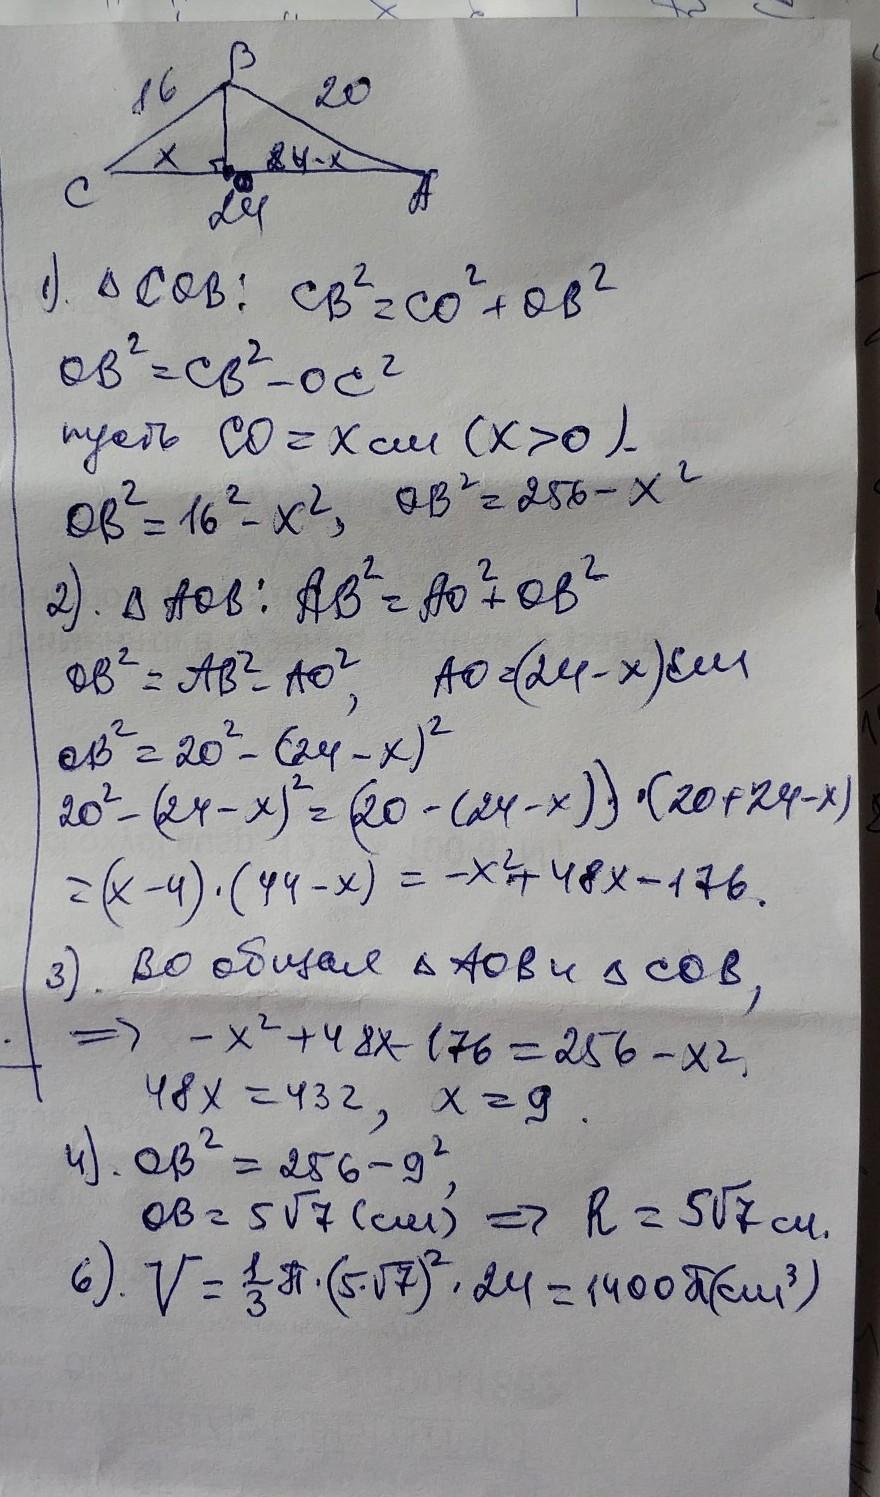 B
16
20
x
24-x
C
24
A
1). Δ COB: CB²=CO²+OB²
OB²=CB²-OC²
пусть CO=x см (x>0).
OB²=16²-x², OB²=256-x²
2). Δ AOB: AB²=AO²+OB²
OB²=AB²-AO², AO=(24-x)см
OB²=20²-(24-x)²
20²-(24-x)²=(20-(24-x))·(20+24-x)
=(x-4)·(44-x)=-x²+48x-176.
3). BO общая Δ AOB и Δ COB,
=> -x²+48x-176=256-x².
48x=432, x=9.
4). OB²=256-9²,
OB=5√7 (см) => R=5√7 см.
6). V=1/3 π·(5·√7)²·24=1400π(см³)